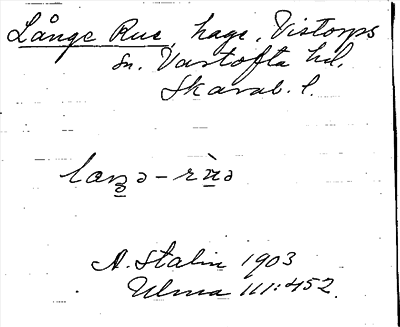 Långe Rue, hage, Vistorps
sn. Vartofta hd.
Skarab. l.
A. Stalin 1903
Ulma 111:452.